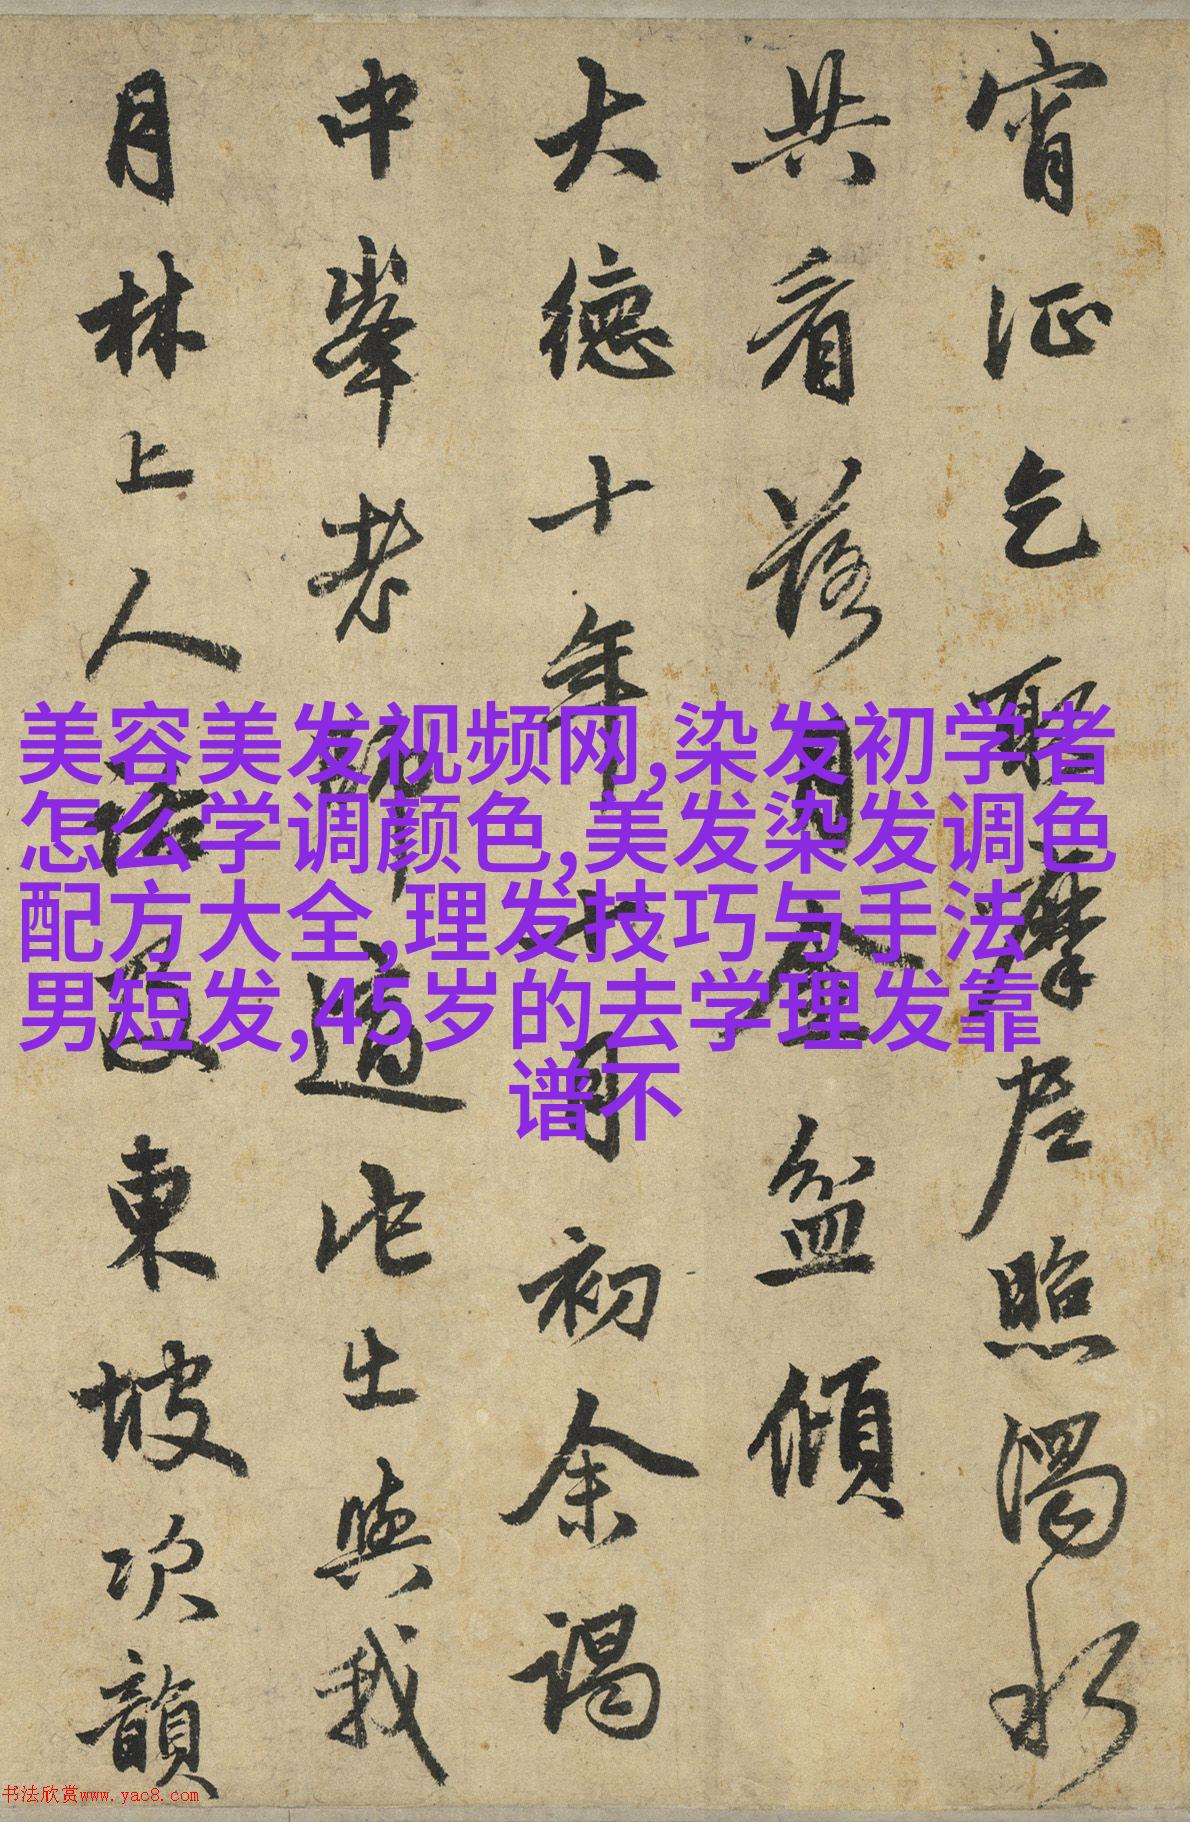 宵征乞取摩尼照濁水
共看落月金盆傾
大德十年月初余謁
中峯老師適他出與我
月林上人話及東坡次韻
美容美发视频网,染发初学者
怎么学调颜色,美发染发调色
配方大全,理发技巧与手法
男短发,45岁的去学理发靠
谱不
书法欣赏www.yac8.com